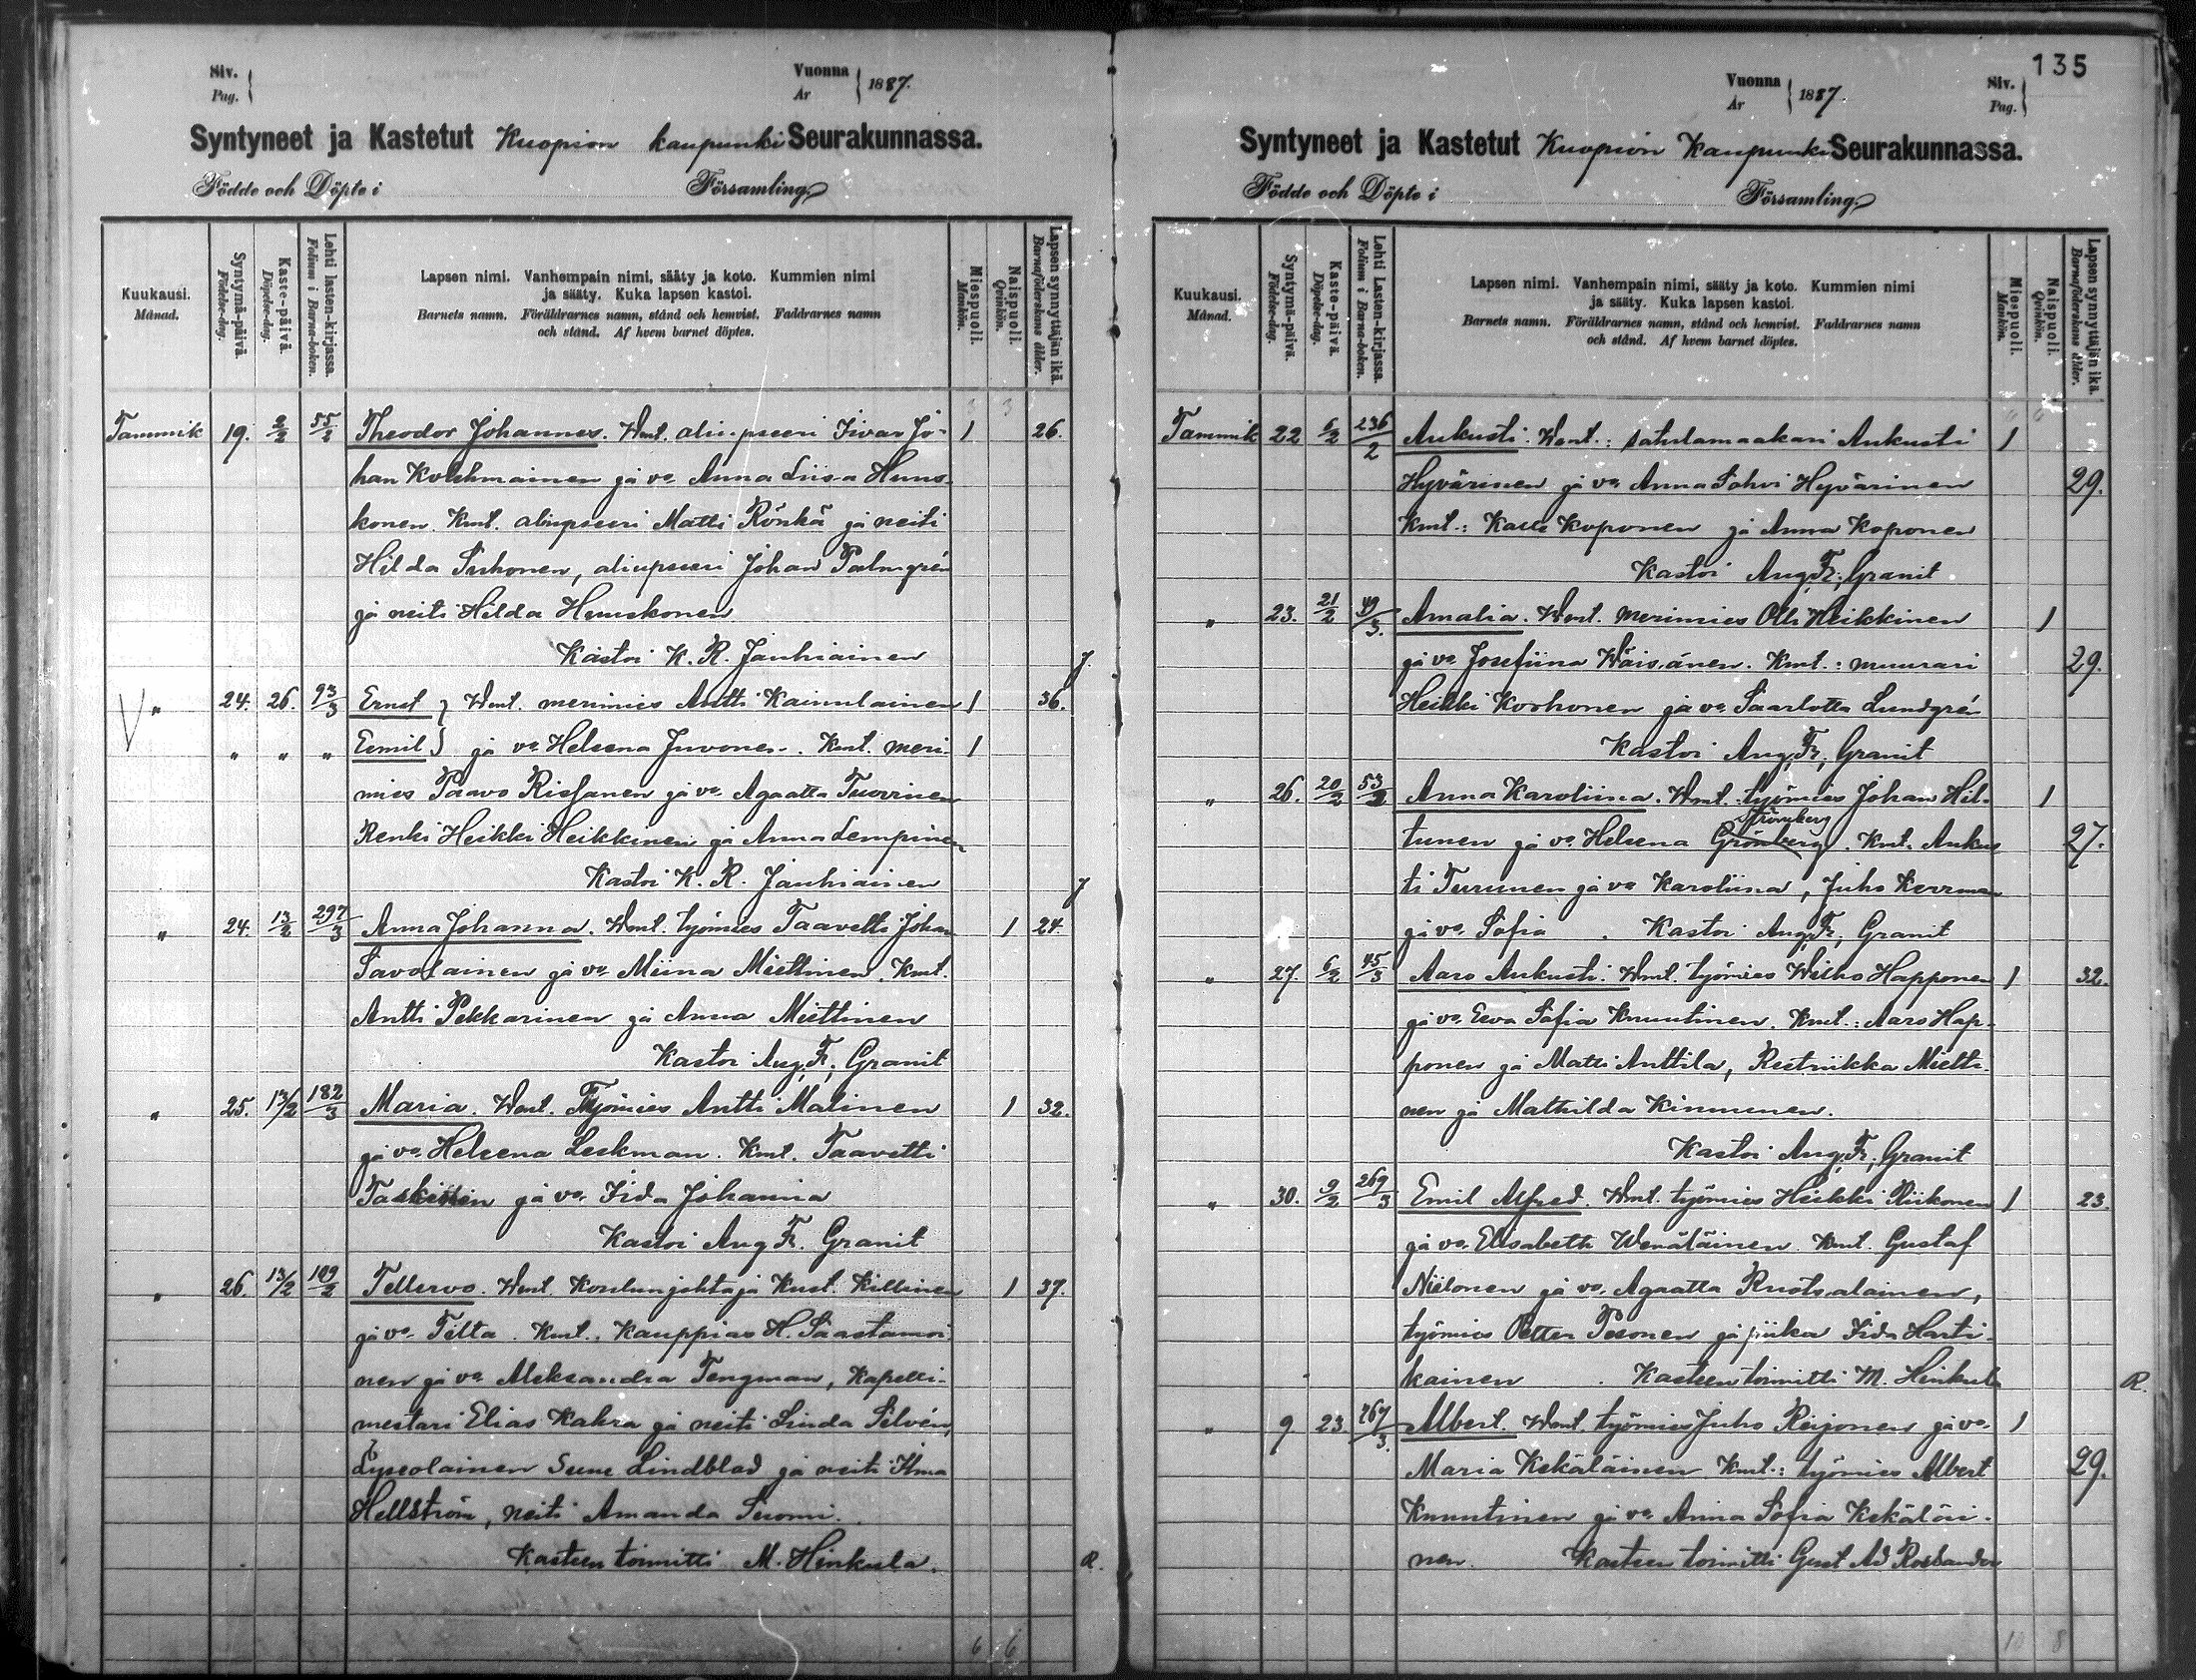 135
Siv.
Pag.
Vuonna
År
1887.
Syntyneet ja Kastetut Kuopion kaupunki Seurakunnassa.
Födde och Döpte i Församling.
Kuukausi.
Månad.
Syntymä-päivä.
Födelse-dag.
Kaste-päivä.
Döpelse-dag.
Lehti lasten-kirjassa.
Folium i Barna-boken.
Lapsen nimi. Vanhempain nimi, sääty ja koto. Kummien nimi
ja sääty. Kuka lapsen kastoi.
Barnets namn. Föräldrarnes namn, stånd och hemvist. Faddrarnes namn
och stånd. Af hvem barnet döptes.
Miespuoli.
Mankön.
Naispuoli.
Qvinkön.
Lapsen synnyttäjän ikä.
Barnaföderskans ålder.
3 3
Tammik 19. 55/2 Theodor Johannes. Wmt. aliupseeri Iivar Jo- 1 26.
han Kolehmainen ja vo Anna Liisa Huns-
konen. Kmt. aliupseeri Matti Rönkä ja neiti
Hilda Suhonen, aliupseeri Johan Palmgrén
ja neiti Hilda Hunskonen
Kastoi K. R. Jauhiainen J.
V " 24. 26. 93/3 Ernst } Wmt. merimies Antti Kainulainen 1 36.
" " " Eemil } ja vo Heleena Juvonen. Kmt. meri- 1
mies Paavo Rissanen ja vo Agaatta Tuovinen
Renki Heikki Heikkinen ja Anna Lempinen
Kastoi K. R. Jauhiainen J
" 24. 13/2 297/3 Anna Johanna. Wmt. työmies Taavetti Johan 1 24.
Savolainen ja vo Miina Miettinen. Kmt.
Antti Pekkarinen ja Anna Miettinen
Kastoi Aug. Fr. Granit
" 25. 13/2 182/3 Maria. Wmt. Työmies Antti Malinen 1 32.
ja vo Heleena Leskman. Kmt. Taavetti
Taskinen ja vo Iida Johanna
Kastoi Aug Fr. Granit
" 26. 13/2 109/2 Tellervo. Wmt. Koulunjohtaja Kust. Killinen 1 37.
ja vo Tilta. Kmt. Kauppias H. Saastamoi
nen ja vo Aleksandra Tengman, Kapelli-
mestari Elias Kahra ja neiti Linda Selvén,
Lyseolainen Sune Lindblad ja neiti Ilma
Hellström, neiti Amanda Suomi.
Kasteen toimitti M. Hinkula. R.
6 6
Siv.
Pag.
Vuonna
År
1887.
Syntyneet ja Kastetut Kuopion Kaupunki Seurakunnassa.
Födde och Döpte i Församling.
Kuukausi.
Månad.
Syntymä-päivä.
Födelse-dag.
Kaste-päivä.
Döpelse-dag.
Lehti Lasten-kirjassa.
Folium i Barna-boken.
Lapsen nimi. Vanhempain nimi, sääty ja koto. Kummien nimi
ja sääty. Kuka lapsen kastoi.
Barnets namn. Föräldrarnes namn, stånd och hemvist. Faddrarnes namn
och stånd. Af hvem barnet döptes.
Miespuoli.
Mankön.
Naispuoli.
Qvinkön.
Lapsen synnyttäjän ikä.
Barnaföderskans ålder.
6 6
Tammik 22 6/2 236/2 Aukusti. Wmt.: satulamaakari Aukusti 1
Hyvärinen ja vo Anna Sohvi Hyvärinen 29.
Kmt.: Kalle Koponen ja Anna Koponen
Kastoi Aug. Fr. Granit
" 23. 21/2 49/3. Amalia. Wmt. merimies Olli Heikkinen 1
ja vo Josefiina Wäisänen. Kmt.: muurari 29.
Heikki Korhonen ja vo Saarlotta Lundgrén
Kastoi Aug. Fr. Granit
" 26. 20/2 53/2 Anna Karoliina. Wmt. työmies Johan Hil- 1
Strömberg
tunen ja vo Heleena Grönberg. Kmt. Aukus 27.
ti Turunen ja vo Karoliina, Juho Kerrman
ja vo Sofia. Kastoi Aug. Fr. Granit
" 27. 6/2 45/3 Aaro Aukusti. Wmt. työmies Wilho Happonen 1 32.
ja vo Eeva Sofia Knuutinen. Kmt.: Aaro Hap-
ponen ja Matti Anttila, Reetriikka Mietti-
nen ja Mathilda Kinnunen.
Kastoi Aug. Fr. Granit
" 30. 9/2 269/3 Emil Alfred. Wmt. työmies Heikki Niikonen 1 23.
ja vo Elisabeth Wenäläinen. Kmt. Gustaf
Niilonen ja vo Agaatta Ruotsalainen,
työmies Petter Pesonen ja piika Iida Harti-
kainen. Kasteen toimitti M. Hinkula R.
" 9. 23. 267/3. Albert. Wmt. työmies Juho Reijonen ja vo 1
Maria Kekäläinen Kmt.: työmies Albert 29.
Knuutinen ja vo Anna Sofia Kekäläi-
nen. Kasteen toimitti Gust Ad Rosbander
10 8